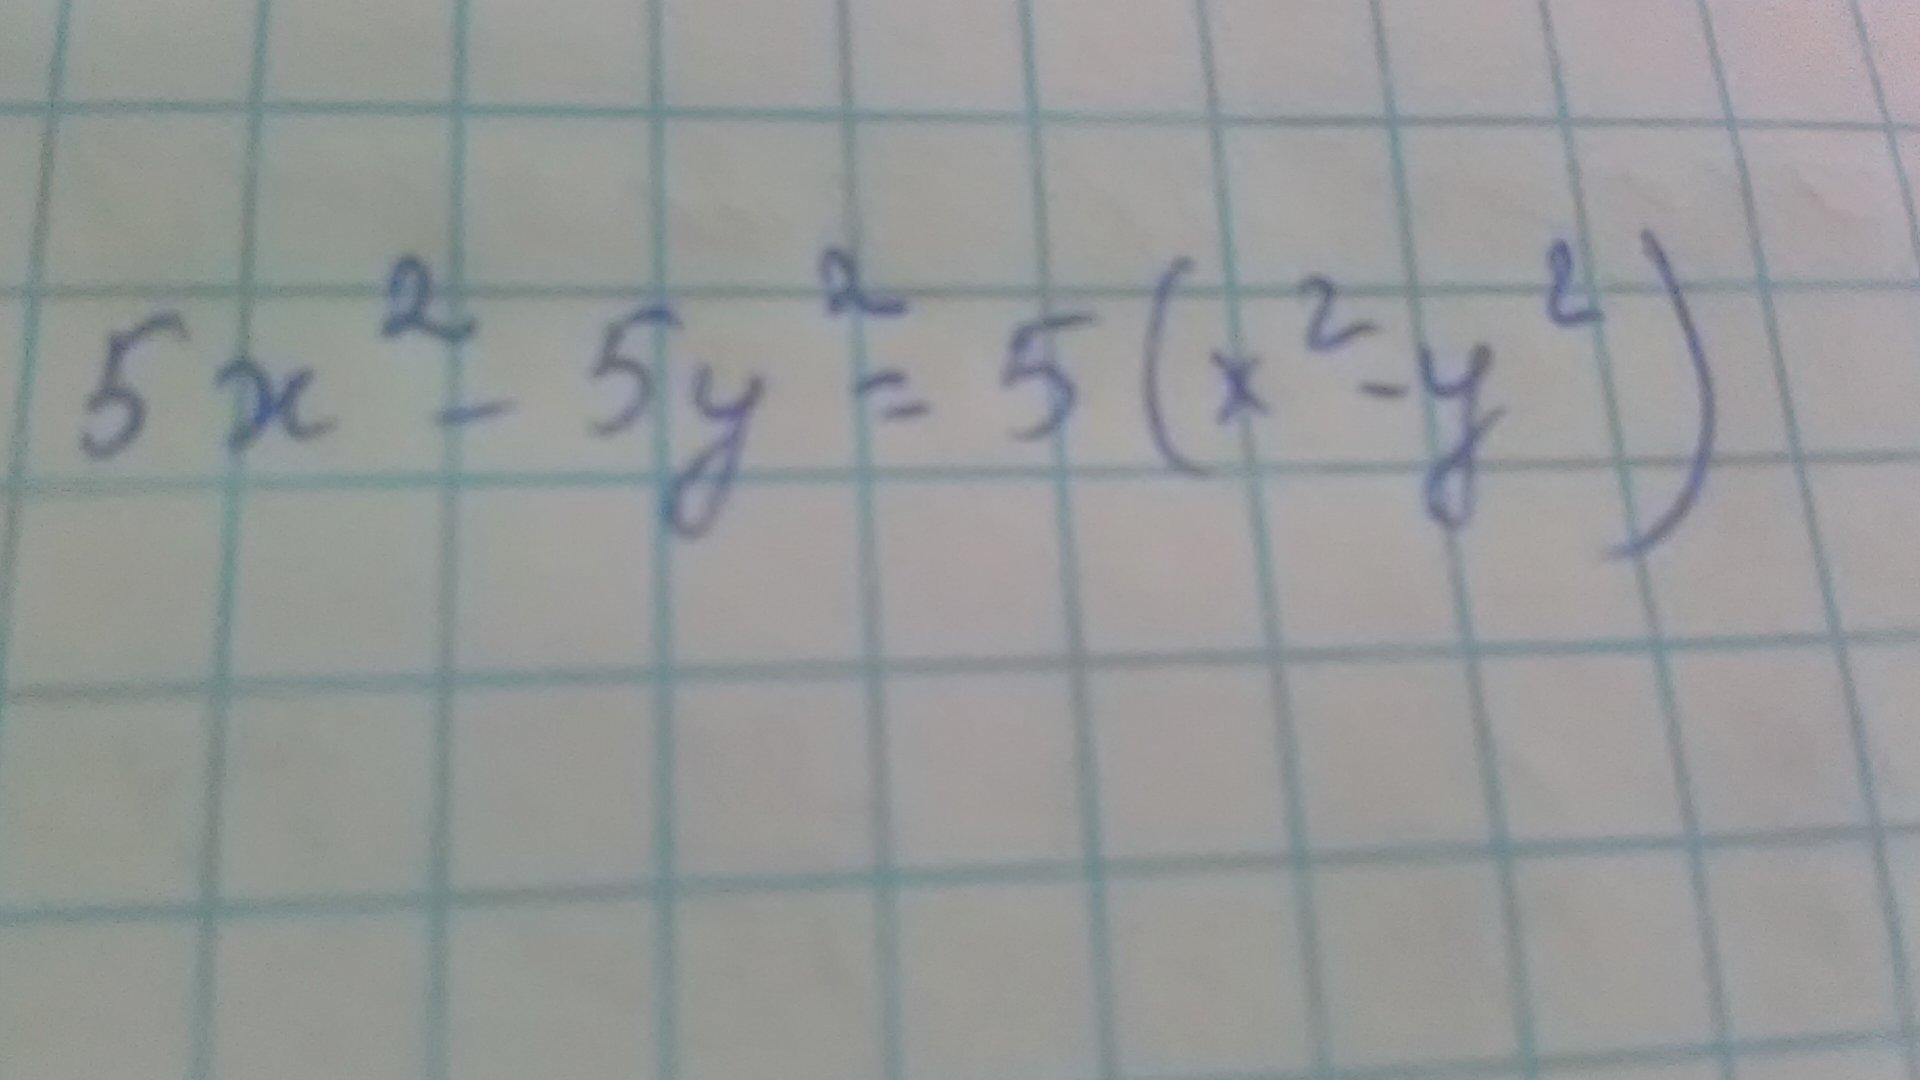 5x² - 5y² = 5(x² - y²)